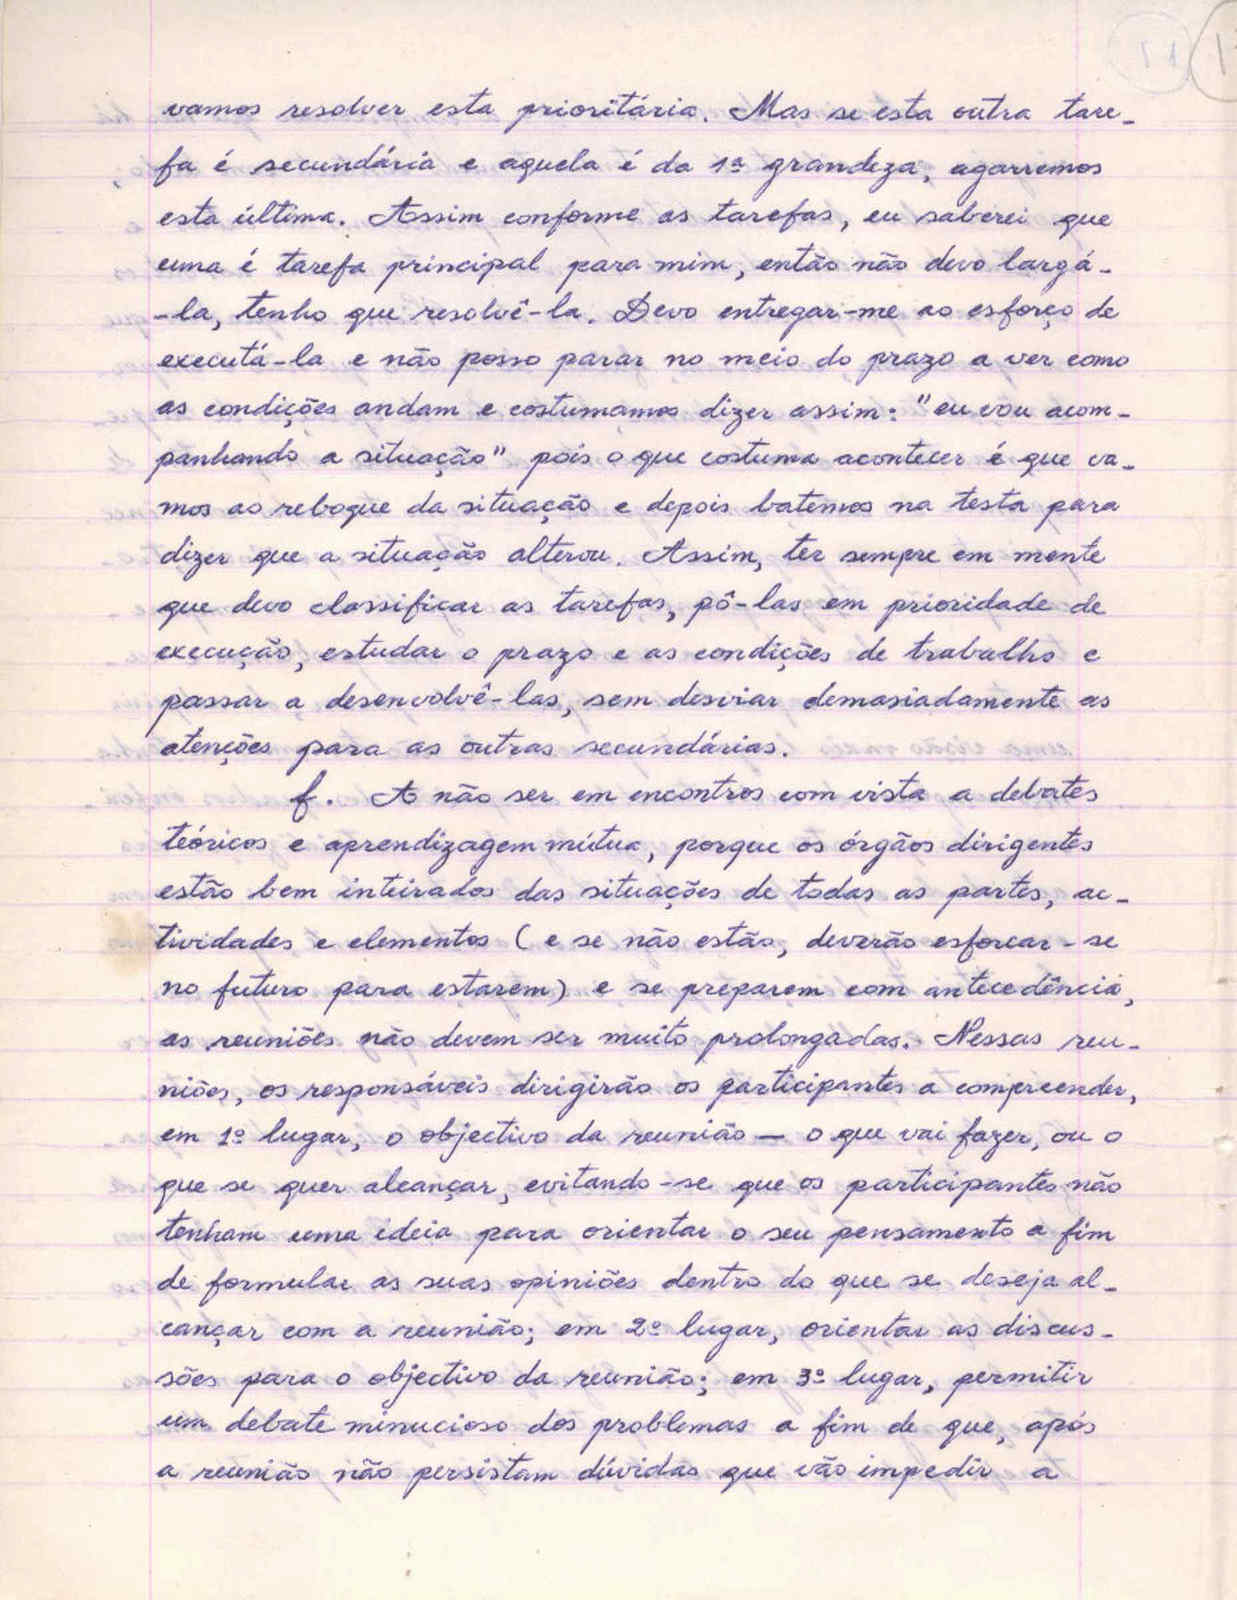 vamos resolver esta prioritária. Mas se esta outra tare-
fa é secundária e aquela é da 1ª grandeza, agarremos
esta última. Assim conforme as tarefas, eu saberei que
uma é tarefa principal para mim, então não devo largá-
-la, tenho que resolvê-la. Devo entregar-me ao esforço de
executá-la e não posso parar no meio do prazo a ver como
as condições andam e costumamos dizer assim: "eu vou acom-
panhando a situação" pois o que costuma acontecer é que va-
mos ao reboque da situação e depois batemos na testa para
dizer que a situação alterou. Assim, ter sempre em mente
que devo classificar as tarefas, pô-las em prioridade de
execução, estudar o prazo e as condições de trabalho e
passar a desenvolvê-las, sem desviar demasiadamente as
atenções para as outras secundárias.
f. A não ser em encontros com vista a debates
teóricos e aprendizagem mútua, porque os órgãos dirigentes
estão bem inteirados das situações de todas as partes, ac-
tividades e elementos (e se não estão, deverão esforcar-se
no futuro para estarem) e se preparem com antecedência,
as reuniões não devem ser muito prolongadas. Nessas reu-
niões, os responsáveis dirigirão os participantes a compreender,
em 1º lugar, o objectivo da reunião — o que vai fazer, ou o
que se quer alcançar, evitando-se que os participantes não
tenham uma ideia para orientar o seu pensamento a fim
de formular as suas opiniões dentro do que se deseja al-
cançar com a reunião; em 2º lugar, orientar as discus-
sões para o objectivo da reunião; em 3º lugar, permitir
um debate minucioso dos problemas a fim de que, após
a reunião não persistam dúvidas que vão impedir a